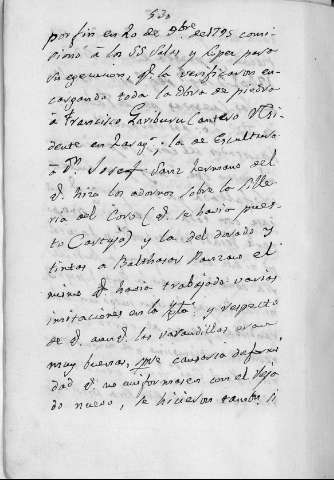 53.
por fin en 20 de 9bre de 1795 comi-
sionó à los SS Salas y Lopez para
su egecucion, qe. la verificaron en-
cargando toda la Obra de piedra
à Francisco Garibura Cantero Resi-
dente en Zaragª., la de Escultura
à Dn. Josef Sanz hermano del
q. hizo los adornos sobre la Sille-
ria del Coro (q. se havia pues-
to Cartuja) y la del dorado y
tintas a Balthasar Panzano el
mismo q. havia trabajado varias
imitaciones en la Ygla. y respecto
de q. aunq. las varandillas eran
muy buenas, que causaria deformi-
dad q. no uniformasen con el Reja-
do nuevo, se hicieron tambn.